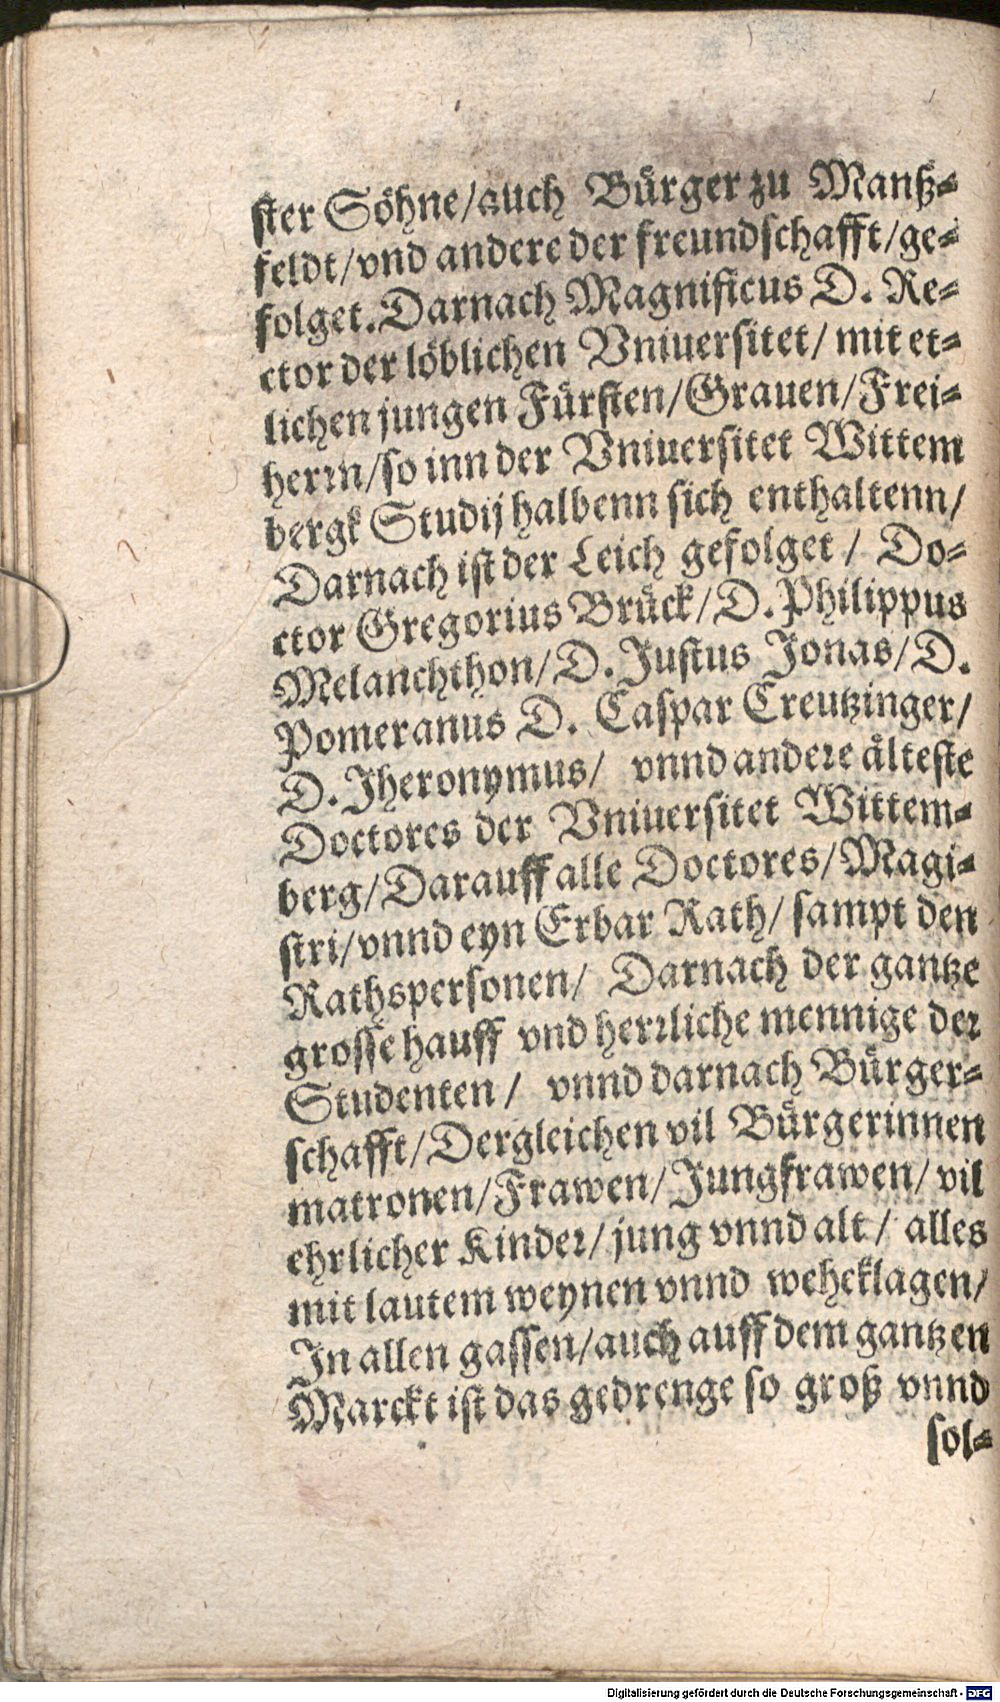 ster Söhne/auch Bürger zu Manß-
feldt/vnd andere der freundschafft/ge-
folget. Darnach Magnificus D. Re-
ctor der löblichen Vniuersitet/ mit et-
lichen jungen Fürsten/Grauen/Frei-
herrn/so inn der Vniuersitet Wittem
bergk Studij halbenn sich enthaltenn/
Darnach ist der Leich gefolget / Do-
ctor Gregorius Brück/D. Philippus
Melanchthon/D. Justus Jonas/D.
Pomeranus D. Caspar Creutzinger/
D. Jheronymus/ vnnd andere älteste
Doctores der Vniuersitet Wittem-
berg/Darauff alle Doctores/Magi-
stri/vnnd eyn Erbar Rath/ sampt den
Rathspersonen/ Darnach der gantze
grosse hauff vnd herrliche mennige der
Studenten / vnnd darnach Bürger-
schafft/Dergleichen vil Bürgerinnen
matronen/Frawen/Jungfrawen/ vil
ehrlicher Kinder/jung vnnd alt / alles
mit lautem weynen vnnd weheklagen/
In allen gassen/auch auff dem gantzen
Marckt ist das gedrenge so groß vnnd
sol-
Digitalisierung gefördert durch die Deutsche Forschungsgemeinschaft - DFG